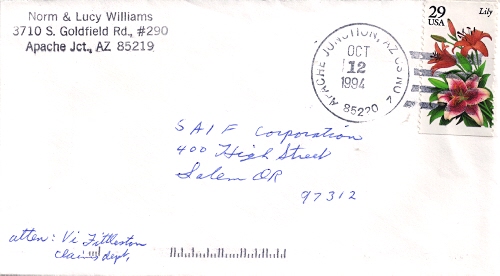 Norm & Lucy Williams
3710 S. Goldfield Rd., #290
Apache Jct., AZ 85219
APACHE JUNCTION, AZ
OCT
12
1994
85220
29
USA
Lily
SAIF Corporation
400 High Street
Salem OR
97312
atten: Vi Tittleston
claims dept,